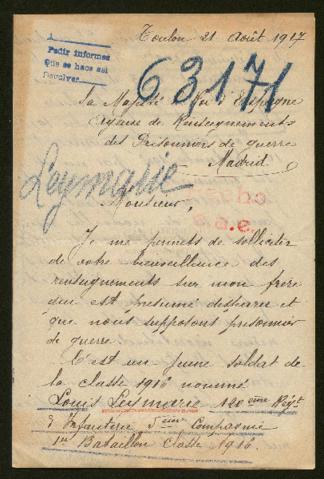 Toulon 21 Août 1917
Pedir informes
que se hace sai
devolver
63171
Sa Majesté Roi d'Espagne
Agence de Renseignements
des Prisonniers de guerre
Madrid
Leymarie
Monsieur,
Je me permets de solliciter
de votre bienveillance des
renseignements sur mon frère
qui est présumé disparu et
que nous supposons prisonnier
de guerre.
C'est un jeune soldat de
la classe 1916 nommé
Louis Leymarie 120 ème Régt
d'Infanterie 5ème Compagnie
1er Bataillon Classe 1916.